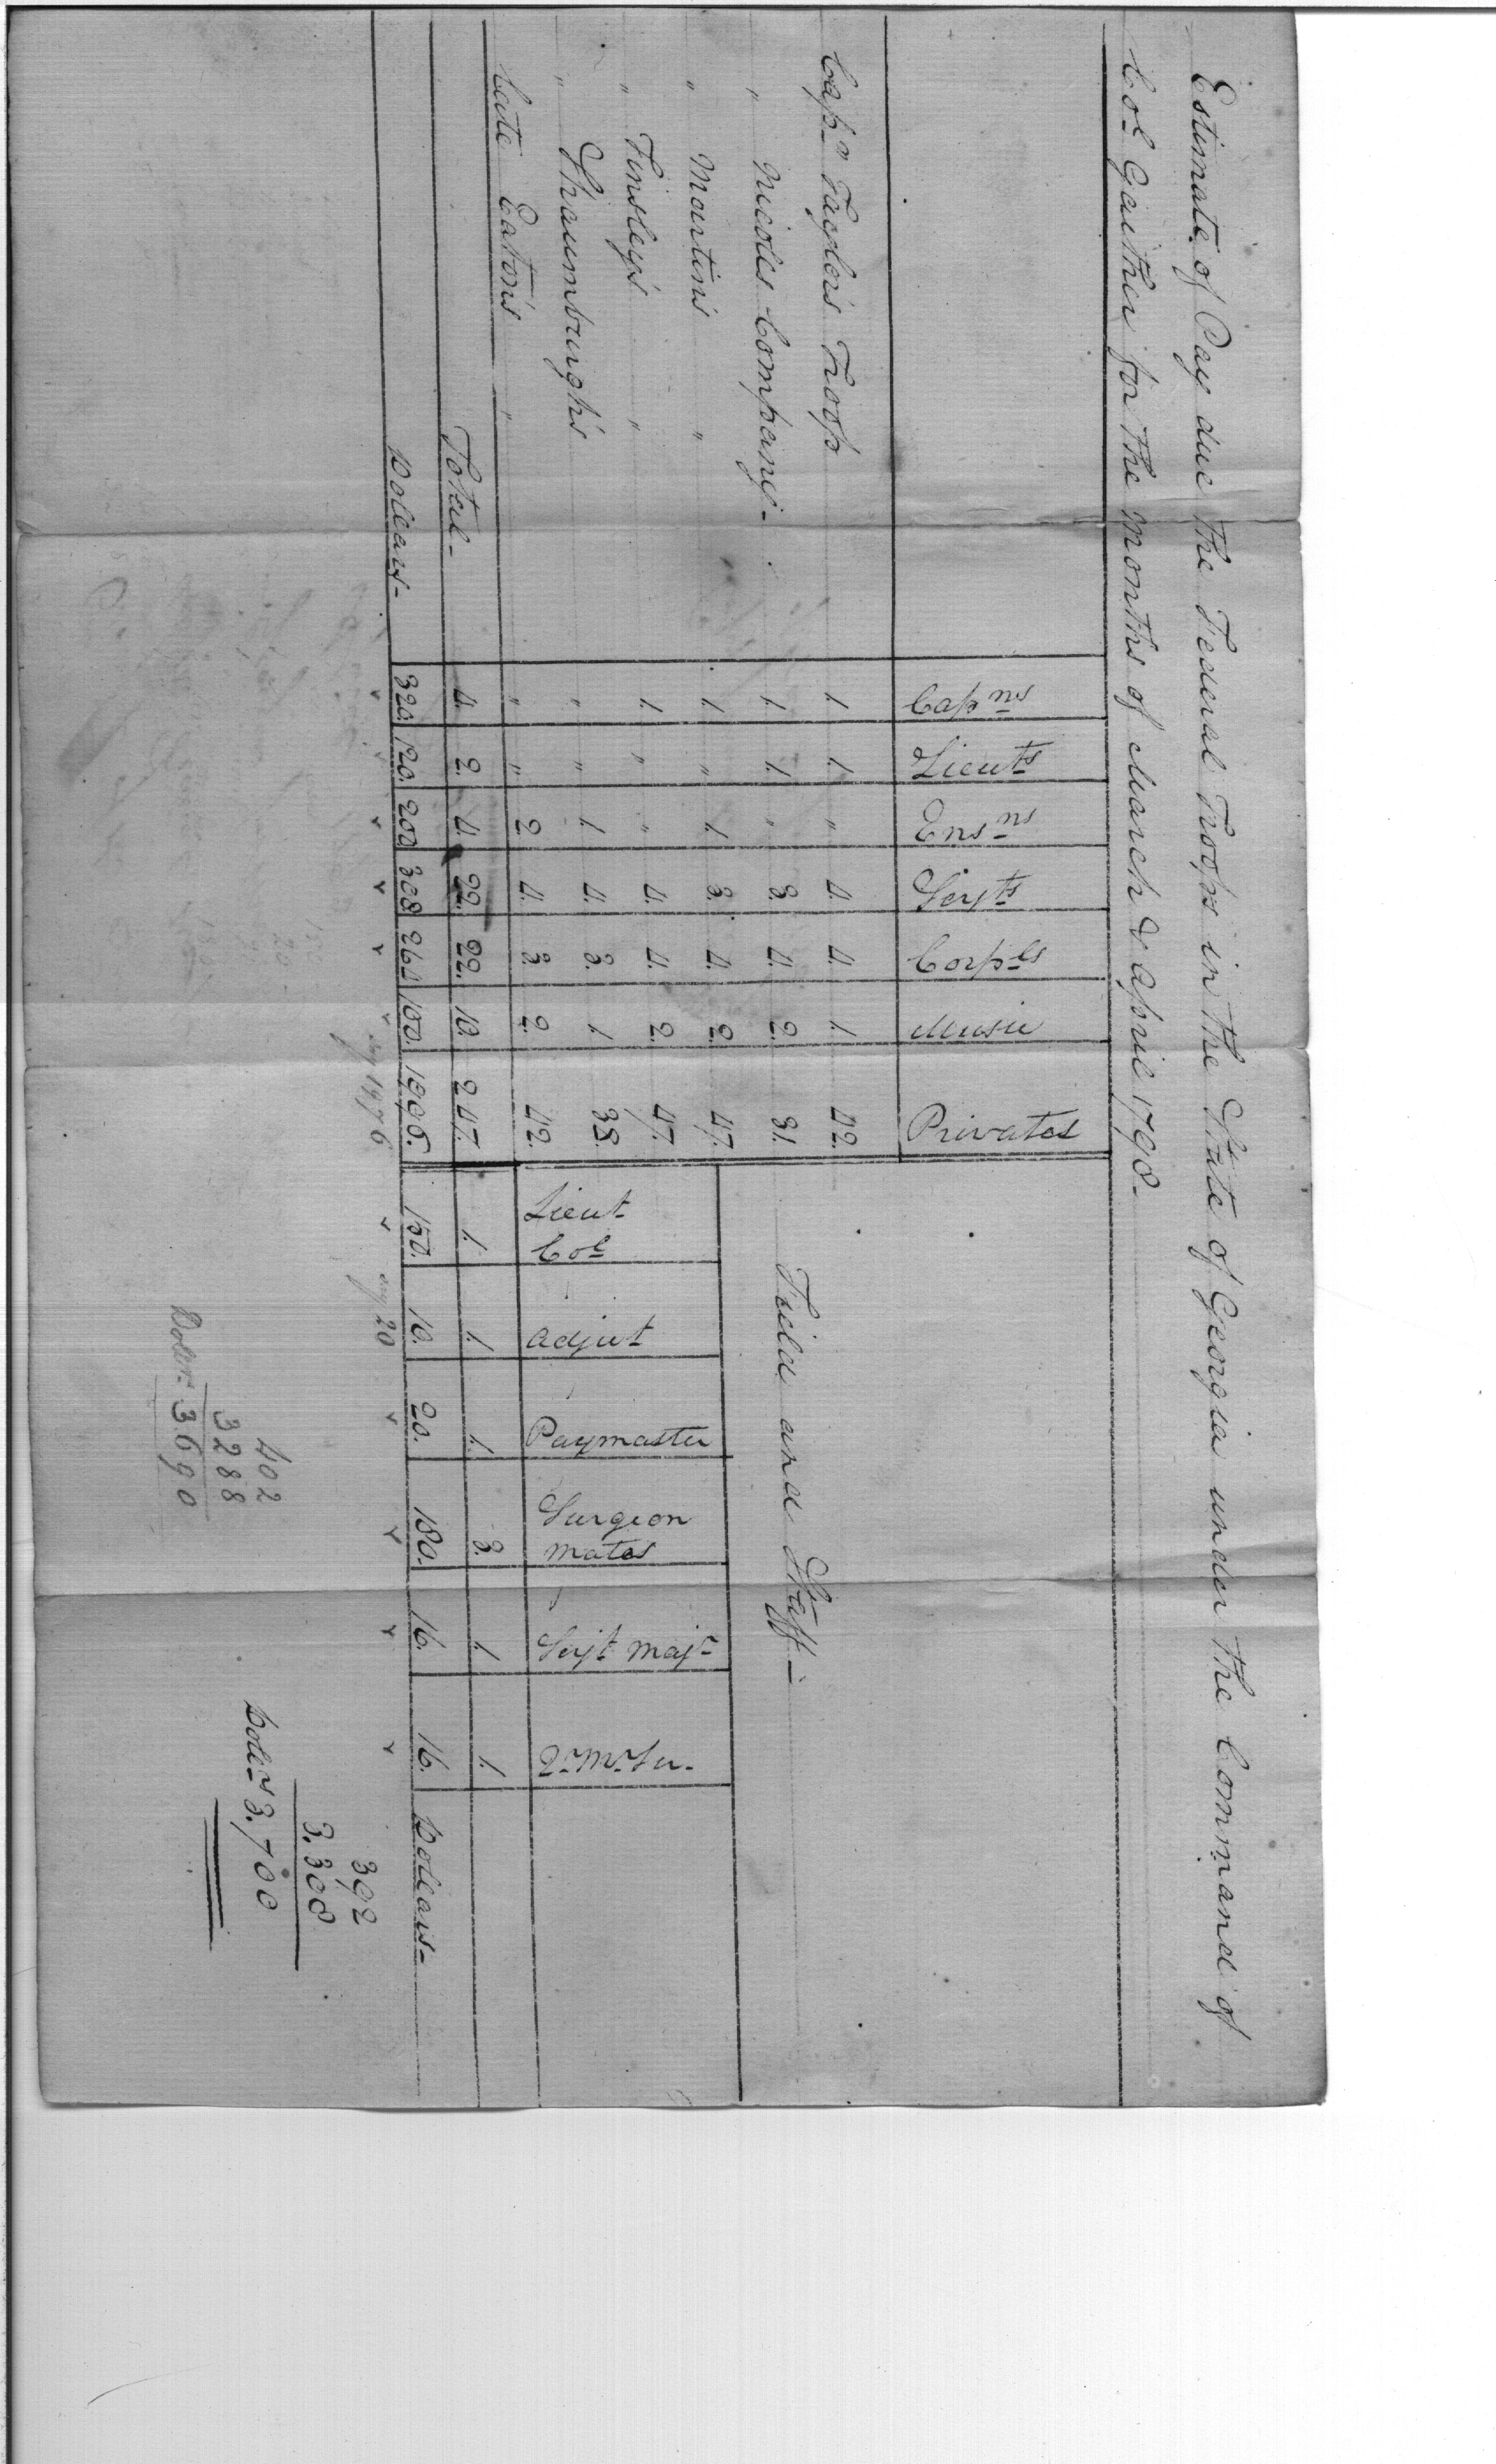 Estimate of Pay due the Federal Troops in the State of Georgia under the Command of
Col Gaither for the Months of March & April 1798-
Capns Lieuts Ensns Serjts Corpls Music Privates
Capn Taylors Troop 1. 1. " 4. 4. 1. 42.
" Nicoles Company- 1. 1. " 3. 4. 2. 31.
" Martins " 1. " 1. 3. 4. 2. 47.
" Tinsleys " 1. " " 4. 4. 2. 47.
" Shaumburghs " " 1. 4. 3. 1 38.
Late Eatons " " " 2. 4. 3. 2. 42.
Field and Staff-
Lieut Col Adjut Paymaster Surgeon mates Serjt Majr Qr Mr Ser-
Total- 4. 2. 4. 22. 22. 10. 247. 1. 1. 1. 3. 1. 1.
Dollars- 320. 120. 200 308 264 100. 1996. 150. 10. 20. 180. 16. 16. Dollars-
1976
20
392
3.308
Dolls 3.700
402
3288
Dolrs 3690